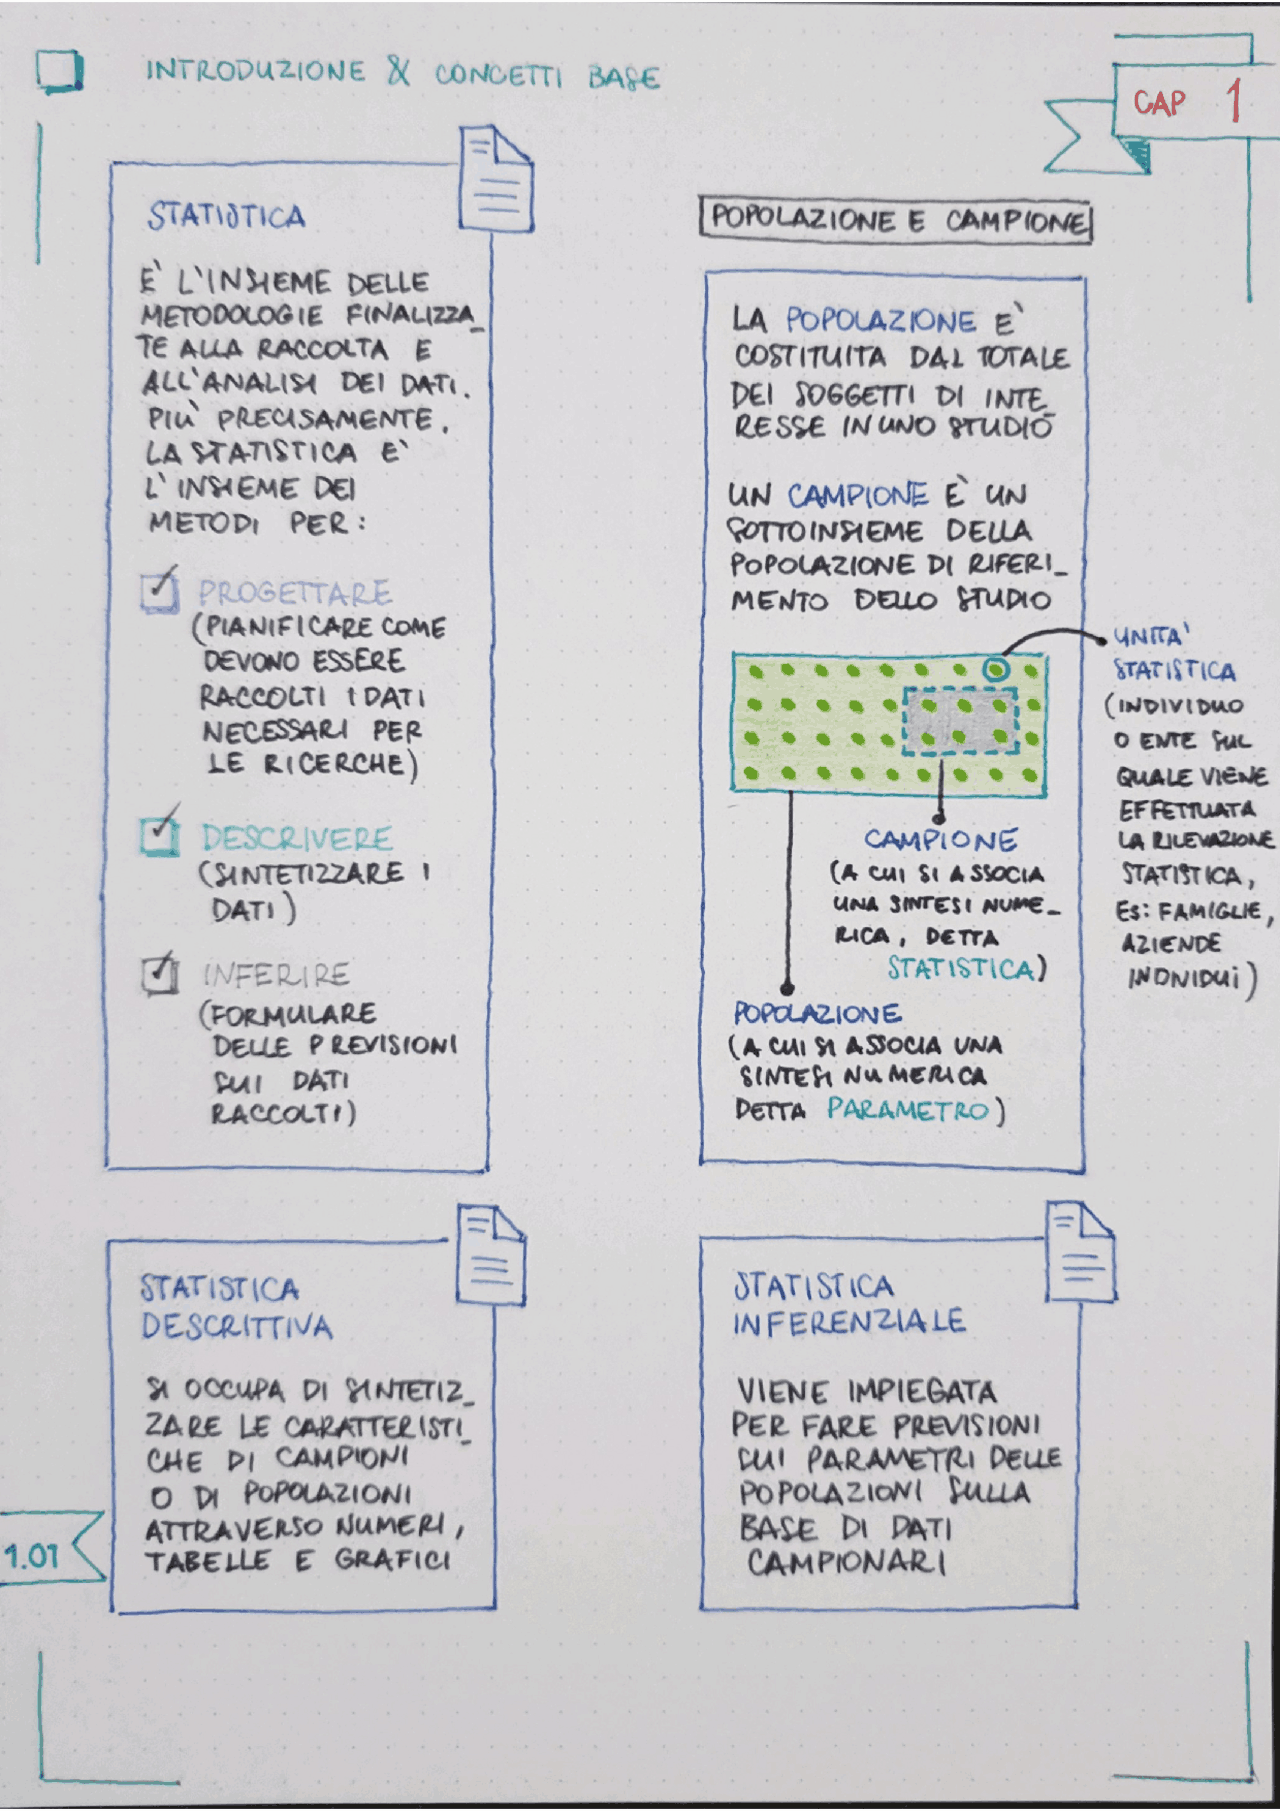 INTRODUZIONE & CONCETTI BASE
CAP 1
STATISTICA
E' L'INSIEME DELLE
METODOLOGIE FINALIZZA_
TE ALLA RACCOLTA E
ALL'ANALISI DEI DATI.
PIU' PRECISAMENTE,
LA STATISTICA E'
L'INSIEME DEI
METODI PER:
PROGETTARE
(PIANIFICARE COME
DEVONO ESSERE
RACCOLTI I DATI
NECESSARI PER
LE RICERCHE)
DESCRIVERE
(SINTETIZZARE I
DATI)
INFERIRE
(FORMULARE
DELLE PREVISIONI
SUI DATI
RACCOLTI)
POPOLAZIONE E CAMPIONE
LA POPOLAZIONE E'
COSTITUITA DAL TOTALE
DEI SOGGETTI DI INTE_
RESSE IN UNO STUDIO
UN CAMPIONE E' UN
SOTTOINSIEME DELLA
POPOLAZIONE DI RIFERI_
MENTO DELLO STUDIO
UNITA'
STATISTICA
(INDIVIDUO
O ENTE SUL
QUALE VIENE
EFFETTUATA
LA RILEVAZIONE
STATISTICA,
ES: FAMIGLIE,
AZIENDE
INDIVIDUI)
CAMPIONE
(A CUI SI ASSOCIA
UNA SINTESI NUME_
RICA, DETTA
STATISTICA)
POPOLAZIONE
(A CUI SI ASSOCIA UNA
SINTESI NUMERICA
DETTA PARAMETRO)
STATISTICA
DESCRITTIVA
SI OCCUPA DI SINTETIZ_
ZARE LE CARATTERISTI_
CHE DI CAMPIONI
O DI POPOLAZIONI
ATTRAVERSO NUMERI,
TABELLE E GRAFICI
STATISTICA
INFERENZIALE
VIENE IMPIEGATA
PER FARE PREVISIONI
SUI PARAMETRI DELLE
POPOLAZIONI SULLA
BASE DI DATI
CAMPIONARI
1.01